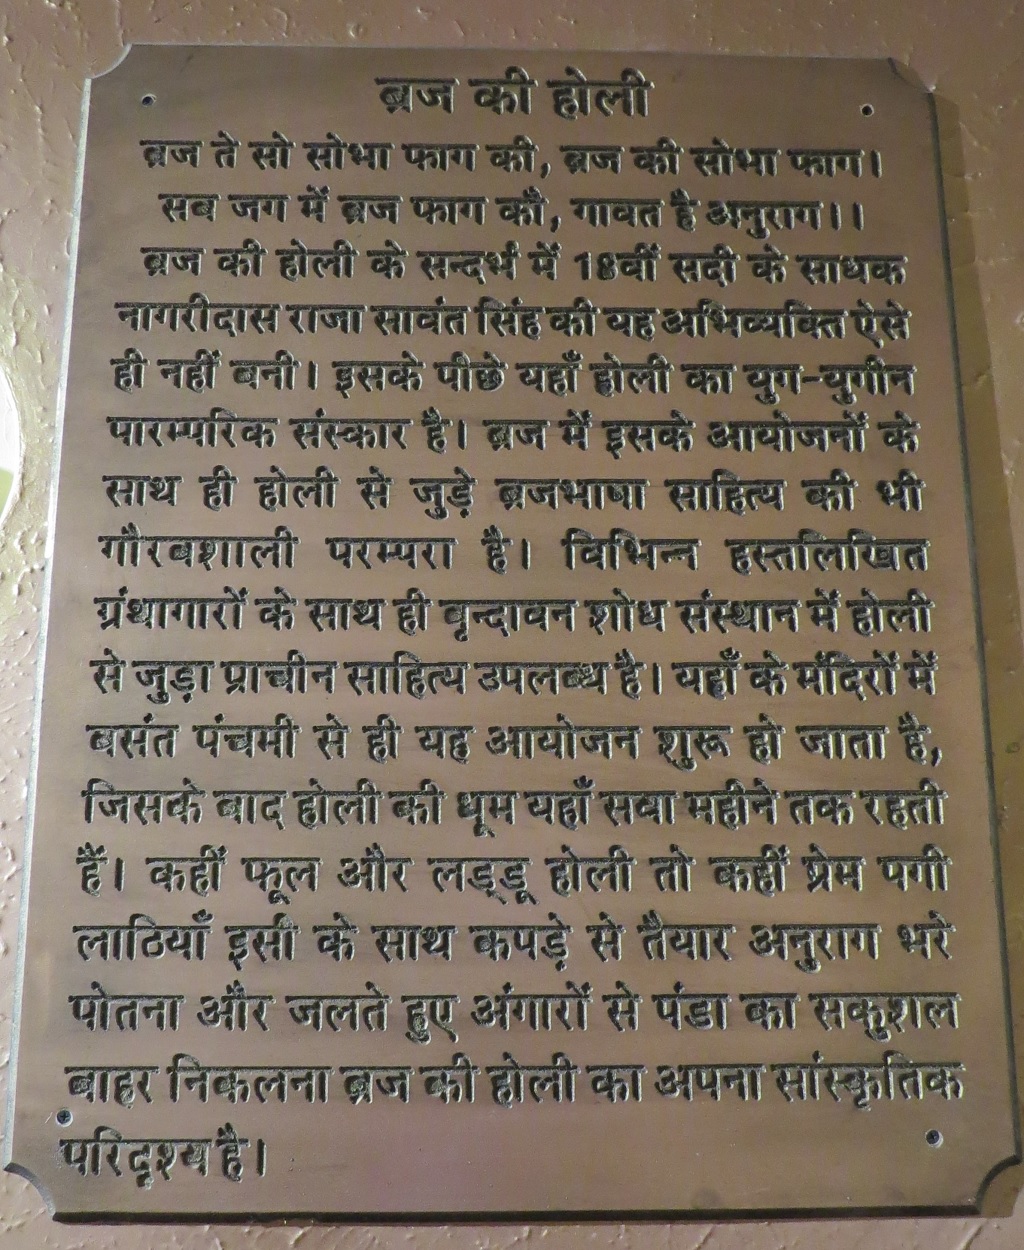 ब्रज की होली
ब्रज ते सो सोभा फाग की, ब्रज की सोभा फाग।
सब जग में ब्रज फाग कौ, गावत है अनुराग।।
ब्रज की होली के सन्दर्भ में 18वीं सदी के साधक
नागरीदास राजा सावंत सिंह की यह अभिव्यक्ति ऐसे
ही नहीं बनी। इसके पीछे यहाँ होली का युग-युगीन
पारम्परिक संस्कार है। ब्रज में इसके आयोजनों के
साथ ही होली से जुड़े ब्रजभाषा साहित्य की भी
गौरवशाली परम्परा है। विभिन्न हस्तलिखित
ग्रंथागारों के साथ ही वृन्दावन शोध संस्थान में होली
से जुड़ा प्राचीन साहित्य उपलब्ध है। यहाँ के मंदिरों में
बसंत पंचमी से ही यह आयोजन शुरू हो जाता है,
जिसके बाद होली की धूम यहाँ सवा महीने तक रहती
हैं। कहीं फूल और लड्डू होली तो कहीं प्रेम पगी
लाठियाँ इसी के साथ कपड़े से तैयार अनुराग भरे
पोतना और जलते हुए अंगारों से पंडा का सकुशल
बाहर निकलना ब्रज की होली का अपना सांस्कृतिक
परिदृश्य है।